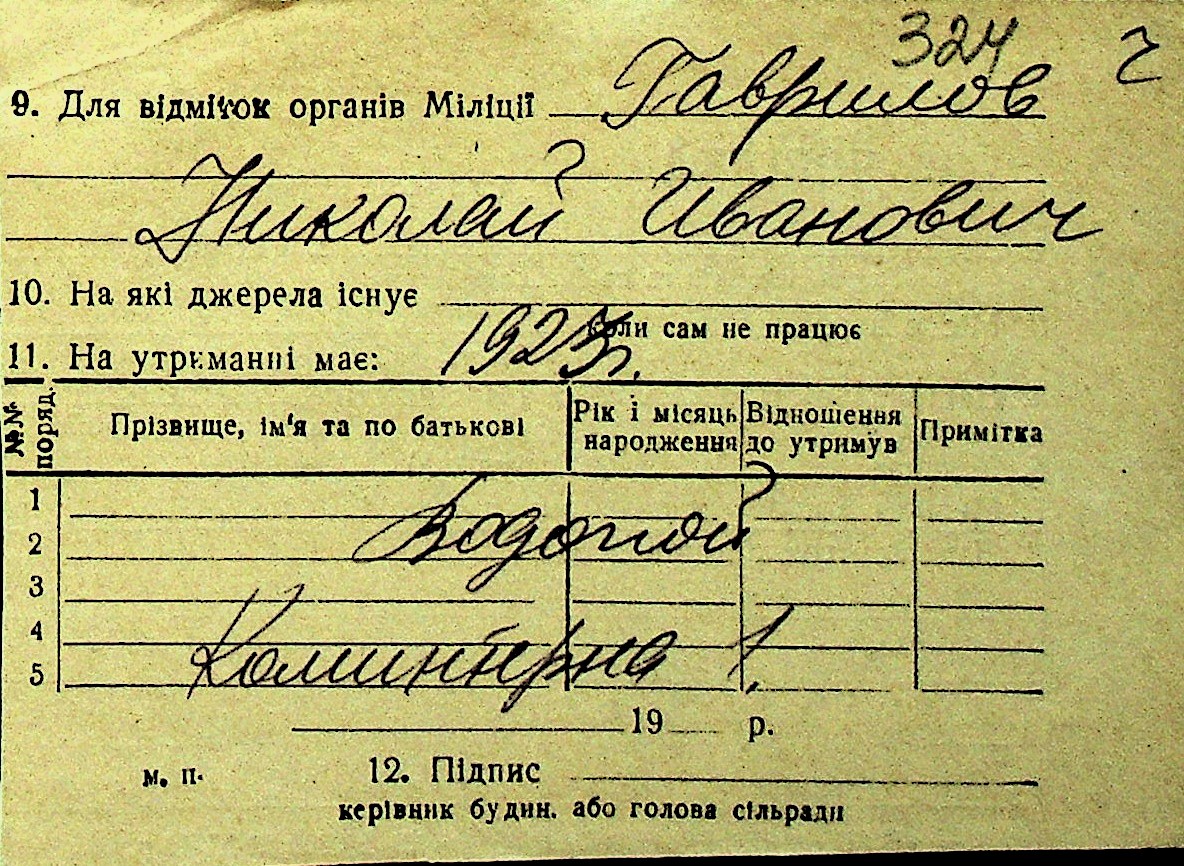 324 г
9. Для відміток органів Міліції Гаврилов
Николай Иванович
10. На які джерела існує
коли сам не працює
11. На утриманні має: 1923г.
№№ поряд. Прізвище, ім'я та по батькові Рік і місяць народження Відношення до утримув Примітка
1
2 Водопой
3
4
5 Коминтерна 1.
19 р.
м. п. 12. Підпис
керівник будин. або голова сільради